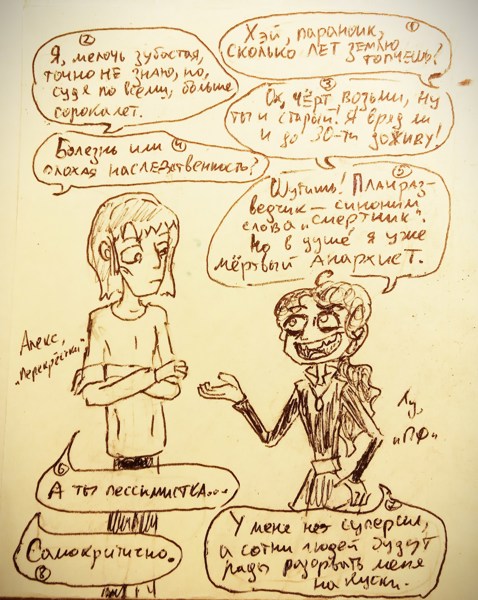 ①
Хэй, параноик,
сколько лет землю
топчешь?
②
Я, мелочь зубостая,
точно не знаю, но,
судя по всему, больше
сорока лет.
③
Ох, чёрт возьми, ну
ты и старый! Я вряд ли
и до 30-ти доживу!
④
Болезнь или
плохая наследственность?
⑤
Шутишь! Планраз-
ведчик – синоним
слова „смертник“.
Но в душе я уже
мёртвый анархист.
Алекс,
„Перекрёстки“
Лу,
„ПФ“
⑥
А ты пессимистка...
У меня нет суперсил,
а сотни людей будут
рады разорвать меня
на куски.
⑧
Самокритично.